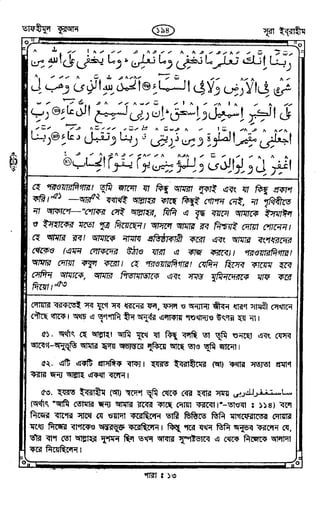 তাফহীমুল কুরআন
১৯৪
সূরা ইবরাহীম
رَبَّنَا إِنَّكَ تَعْلَمُ مَا نُخْفِي وَمَا نُعْلِنُ وَمَا يَخْفَى عَلَى اللَّهِ مِنْ
شَيْءٍ فِي الْأَرْضِ وَلَا فِي السَّمَاءِ ۝ الْحَمْدُ لِلَّهِ الَّذِي وَهَبَ لِي
عَلَى الْكِبَرِ إِسْمَاعِيلَ وَإِسْحَاقَ إِنَّ رَبِّي لَسَمِيعُ الدُّعَاءِ ۝ رَبِّ
اجْعَلْنِي مُقِيمَ الصَّلَاةِ وَمِنْ ذُرِّيَّتِي رَبَّنَا وَتَقَبَّلْ دُعَاءِ ۝ رَبَّنَا
اغْفِرْ لِي وَلِوَالِدَيَّ وَلِلْمُؤْمِنِينَ يَوْمَ يَقُومُ الْحِسَابُ ۝
হে পরওয়ারদিগার! তুমি জানো যা কিছু আমরা লুকাই এবং যা কিছু প্রকাশ
করি।"—আর যথার্থই আল্লাহর কাছে কিছুই গোপন নেই, না পৃথিবীতে
না আকাশে—"শোকর সেই আল্লাহর, যিনি এ বৃদ্ধ বয়সে আমাকে ইসমাঈল
ও ইসহাকের মতো পুত্র দিয়েছেন। আসলে আমার রব নিশ্চয়ই দোয়া শোনেন।
হে আমার রব! আমাকে নামায প্রতিষ্ঠাকারী করো এবং আমার বংশধরদের
থেকেও (এমন লোকদের উঠাও যারা এ কাজ করবে)। পরওয়ারদিগার!
আমার দোয়া কবুল করো। হে পরওয়ারদিগার! যেদিন হিসেব কায়েম হবে
সেদিন আমাকে, আমার পিতামাতাকে এবং সমস্ত মুমিনদেরকে মাফ করে
দিয়ো।"
দোয়ার বরকতেই সব যুগে সব ধরনের ফল, ফসল ও অন্যান্য জীবন ধারণ সামগ্রী সেখানে
পৌঁছে থাকে। অথচ এ
৫১. অর্থাৎ হে আল্লাহ! আমি মুখে যা কিছু বলছি তা তুমি শুনছো এবং যেসব
আবেগ-অনুভূতি আমার হৃদয় অভ্যন্তরে লুকিয়ে আছে তাও তুমি জানো।
৫২. এটি একটি প্রাসঙ্গিক বাক্য। হযরত ইবরাহীমের (আ) কথার সত্যতা প্রমাণ
করার জন্য আল্লাহ একথা বলেন।
৫৩. হযরত ইবরাহীম (আ) স্বদেশ ভূমি থেকে বের হবার সময় سَأَسْتَغْفِرُ لَكَ رَبِّي
(অর্থাৎ "আমি তোমার জন্য আমার রবের কাছে দোয়া করবো।") বলে
নিজের বাপের সাথে যে ওয়াদা করেছিলেন তারি ভিত্তিতে তিনি মাগফেরাতের দোয়ার
মধ্যে নিজের বাপকেও অন্তরভুক্ত করেছিলেন। কিন্তু পরে যখন তিনি অনুভব করলেন যে,
তাঁর বাপ তো আল্লাহর দুশমন ছিল তখন আবার সুস্পষ্টভাবে এ থেকে নিজেকে আলাদা
করে নিয়েছিলেন।
পারা : ১৩